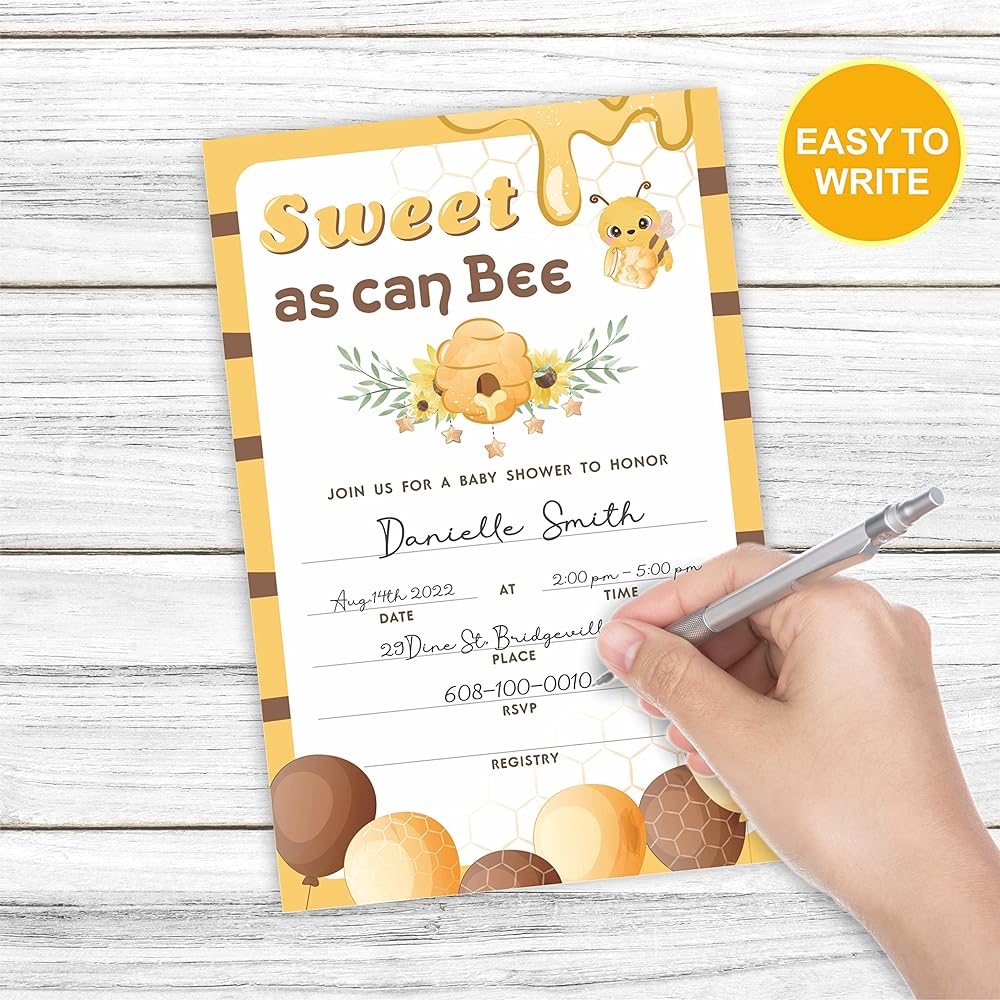 EASY TO
WRITE
Sweet
as can Bee
JOIN US FOR A BABY SHOWER TO HONOR
Danielle Smith
Aug.14th 2022 AT 2:00 pm – 5:00 pm
DATE TIME
29 Dine St. Bridgevill
PLACE
608-100-0010
RSVP
REGISTRY